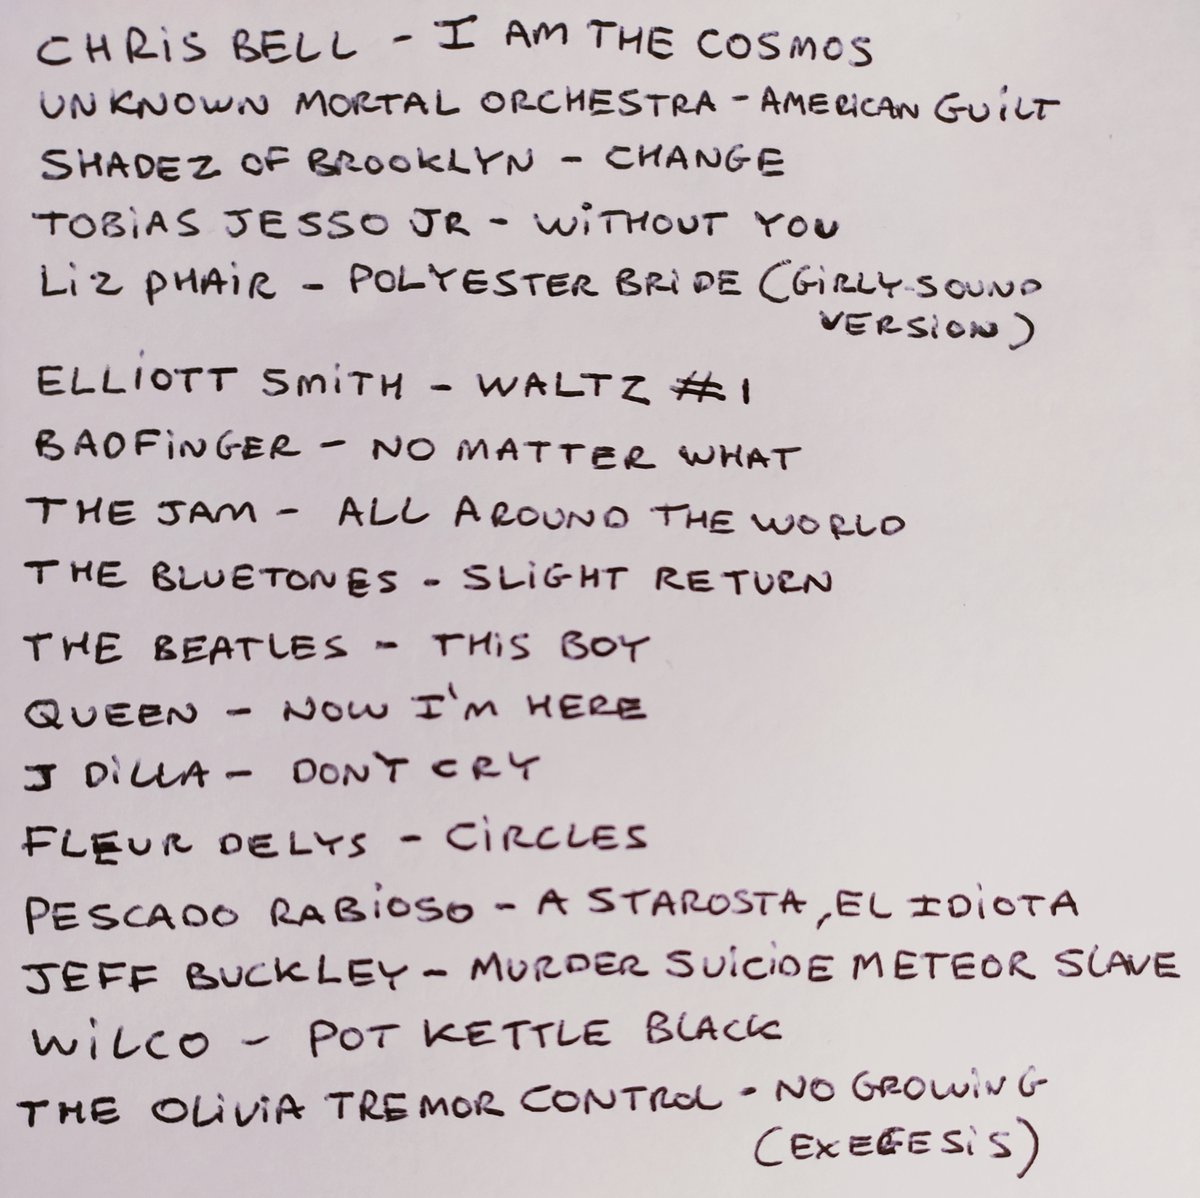 CHRIS BELL - I AM THE COSMOS
UNKNOWN MORTAL ORCHESTRA - AMERICAN GUILT
SHADEZ OF BROOKLYN - CHANGE
TOBIAS JESSO JR - WITHOUT YOU
LIZ PHAIR - POLYESTER BRIDE (GIRLY-SOUND
VERSION)
ELLIOTT SMITH - WALTZ #1
BADFINGER - NO MATTER WHAT
THE JAM - ALL AROUND THE WORLD
THE BLUETONES - SLIGHT RETURN
THE BEATLES - THIS BOY
QUEEN - NOW I'M HERE
J DILLA - DON'T CRY
FLEUR DELYS - CIRCLES
PESCADO RABIOSO - A STAROSTA, EL IDIOTA
JEFF BUCKLEY - MURDER SUICIDE METEOR SLAVE
WILCO - POT KETTLE BLACK
THE OLIVIA TREMOR CONTROL - NO GROWING
(EXEGESIS)